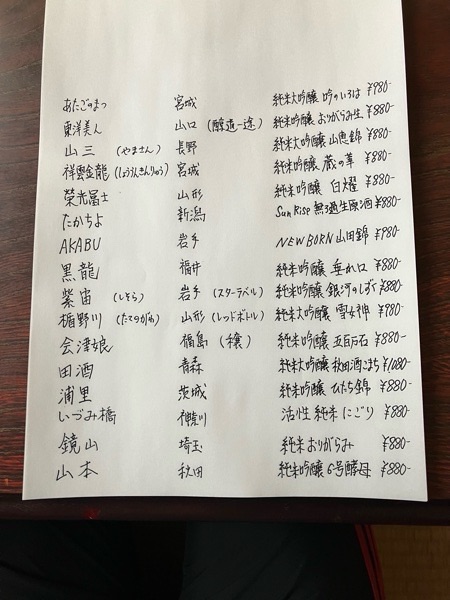 あたごのまつ 宮城 純米大吟醸 吟のいろは ¥980-
東洋美人 山口 (醇道一途) 純米吟醸 おりがらみ生 ¥880-
山三 (やまさん) 長野 純米大吟醸 山恵錦 ¥880-
祥雲金龍 (しょううんきんりゅう) 宮城 純米吟醸 蔵の華 ¥880-
榮光冨士 山形 純米吟醸 白燿 ¥880-
たかちよ 新潟 Sun Rise 無ろ過生原酒 ¥880-
AKABU 岩手 NEWBORN 山田錦 ¥980-
黒龍 福井 純米吟醸 垂れ口 ¥880-
紫宙 (しそら) 岩手 (スターラベル) 純米吟醸 銀河のしずく ¥880-
楯野川 (たてのがわ) 山形 (レッドボトル) 純米大吟醸 雪女神 ¥980-
会津娘 福島 (穣) 純米吟醸 五百万石 ¥880-
田酒 青森 純米大吟醸 秋田酒こまち ¥1080-
浦里 茨城 純米吟醸 ひたち錦 ¥880-
いづみ橋 神奈川 活性 純米 にごり ¥880-
鏡山 埼玉 純米 おりがらみ ¥880-
山本 秋田 純米吟醸 6号酵母 ¥880-